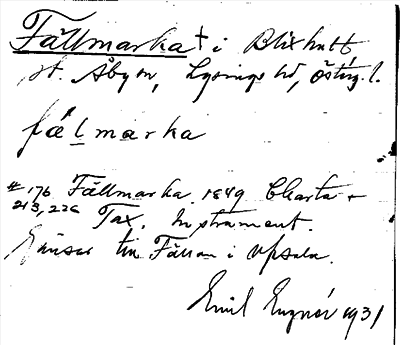 Fällmarka † i Blixhult
st. Åby sn, Lysings hd, Östg. l.
fælmarka
# 176 Fällmarka 1849 Charta +
213, 226 Tax. Instrument.
till Fällan i Upsala.
Emil 1931